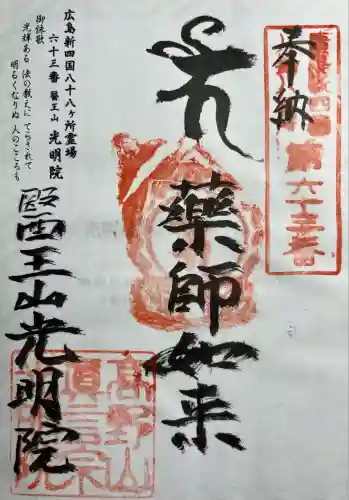 奉納
廣島新四國
第六十三番
藥師如来
広島新四国八十八ヶ所霊場
六十三番 醫王山 光明院
御詠歌
光輝ある 法の教えに てらされて
明るくなりぬ 人のこころも
醫王山光明院
高野山
真言宗